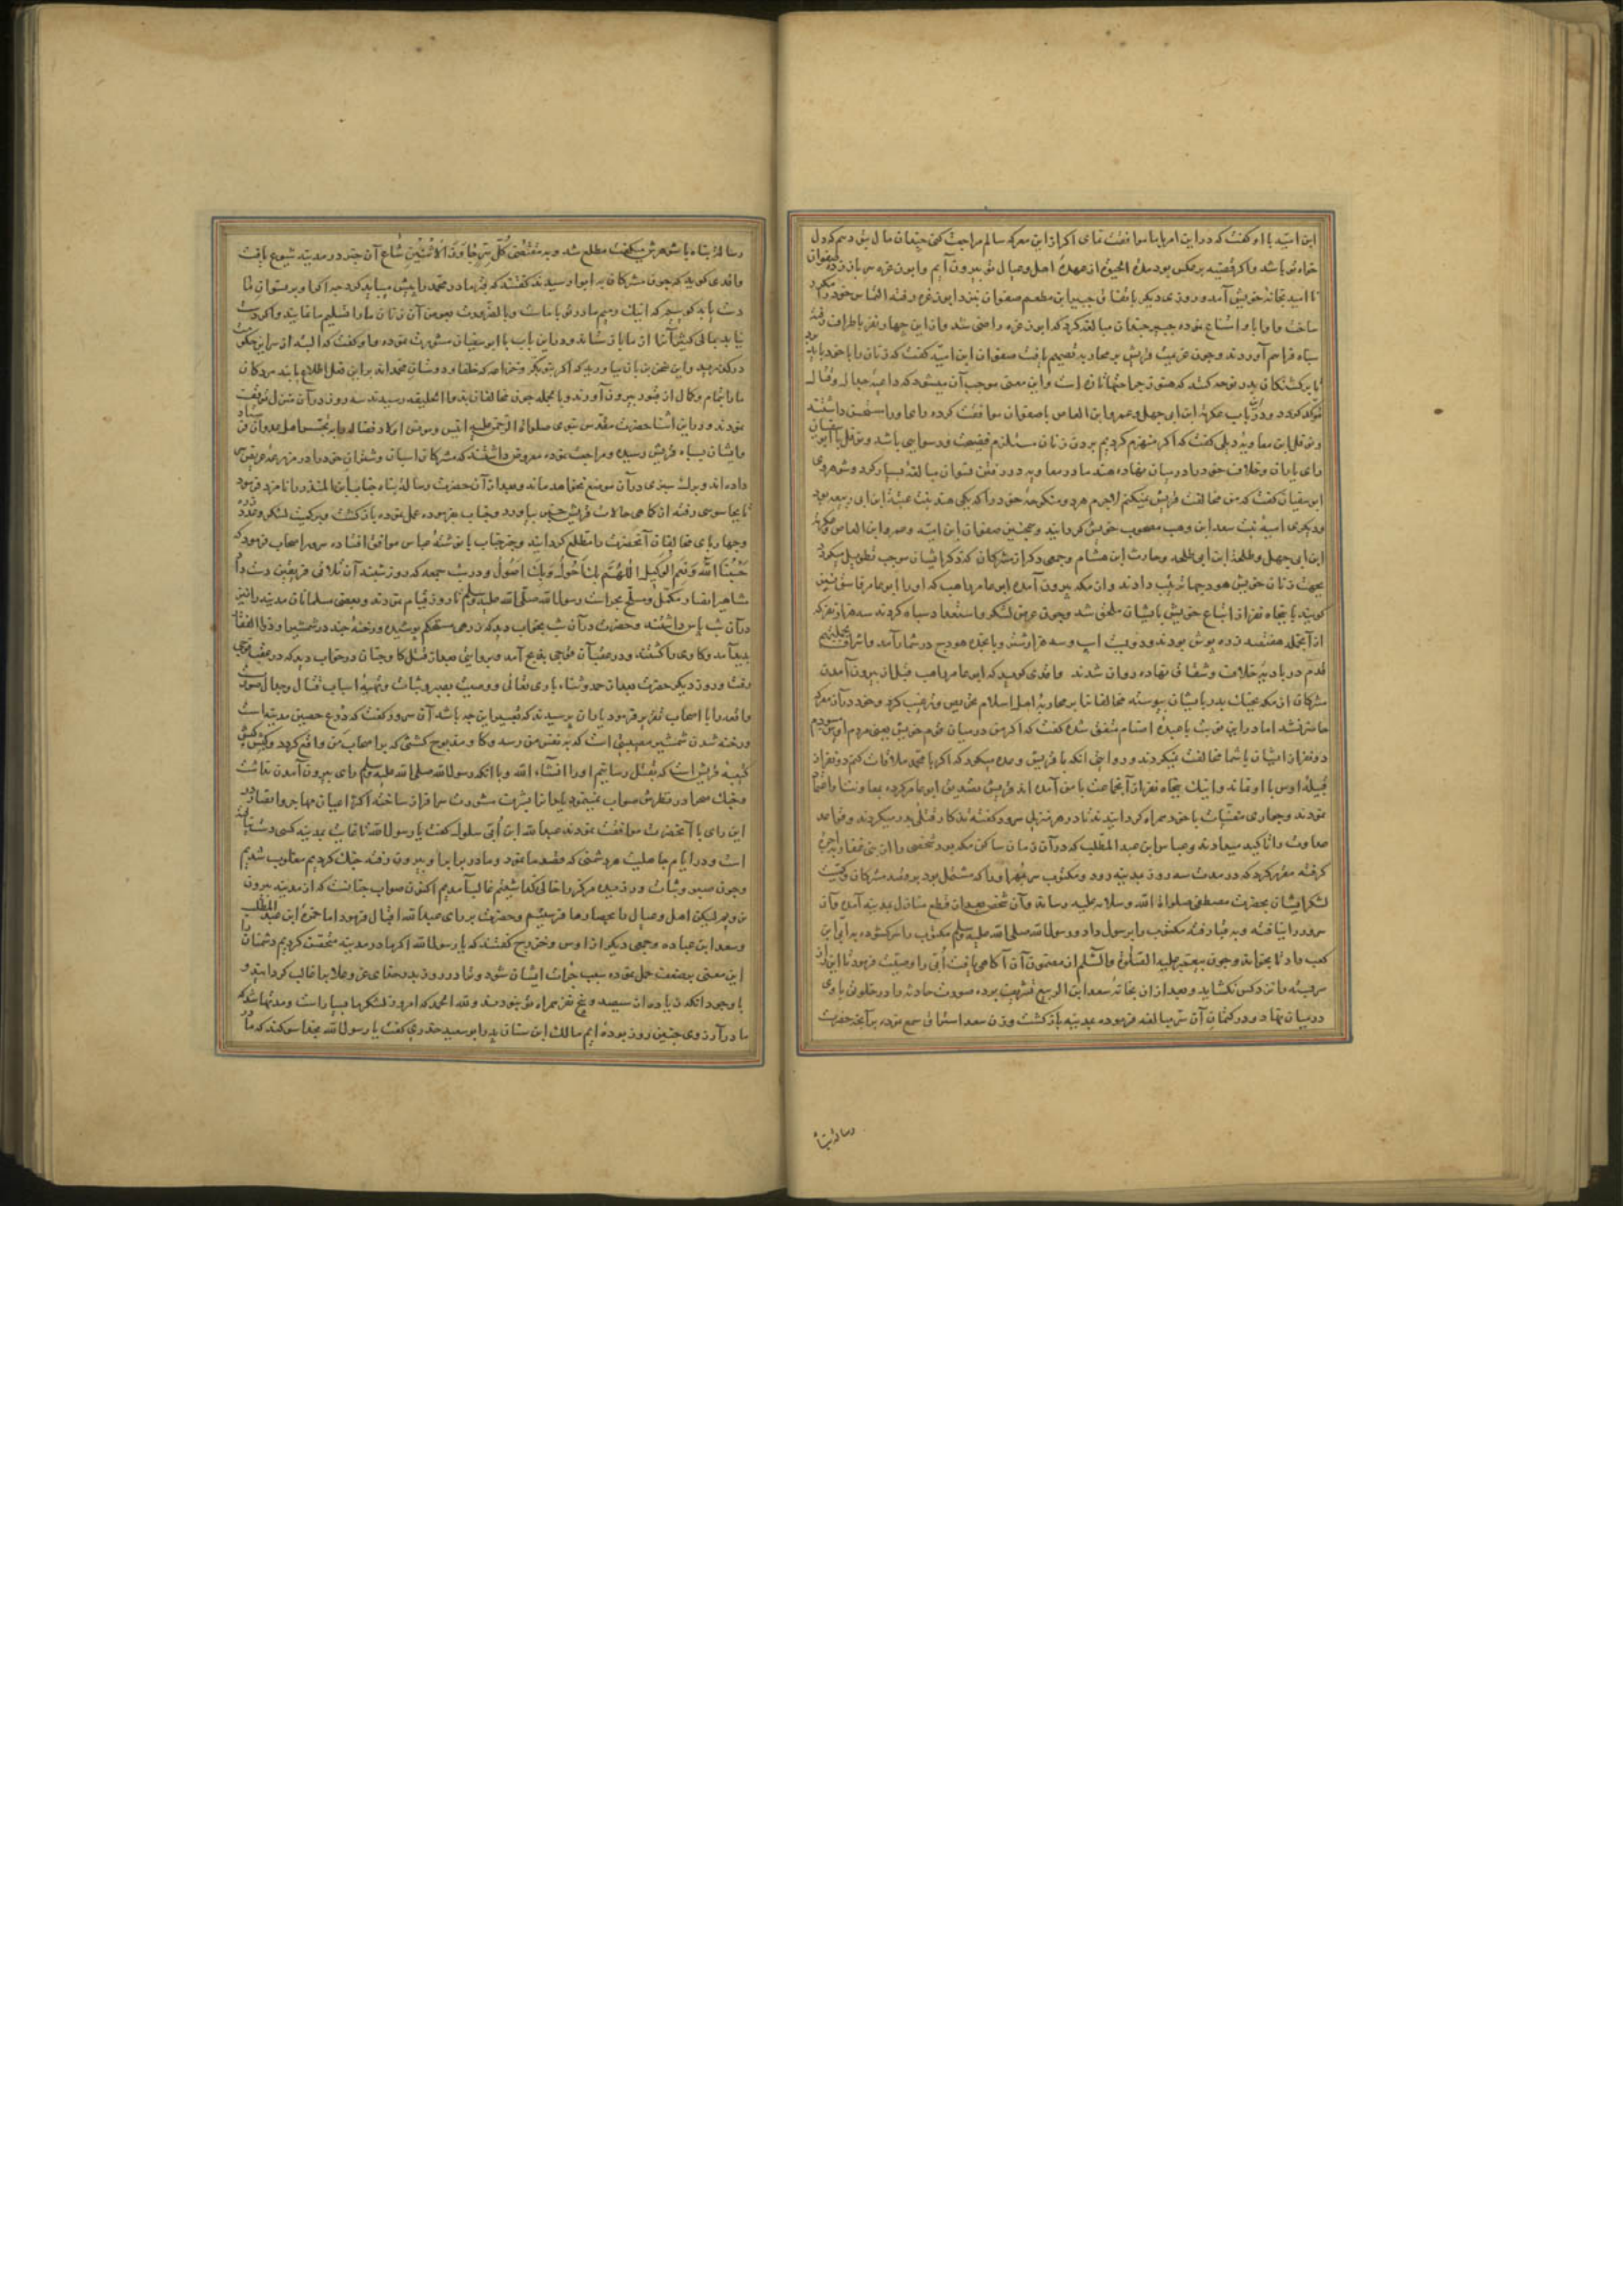 ابن امیه با او گفت که در این امر با ما موافقت نمای اگر از این معرکه سالم مراجعت کنی چندان مال بتو دهم که دل
خواه تو باشد و اگر قضیه برعکس بود مدة الحیوة از عهدهٔ اهل و عیال تو بیرون آیم و ابو عزه سر باز زده صفوان
نا امید بخانهٔ خویش آمد و روز دیگر باتفاق جبیر ابن مطعم صفوان نزد ابو عزه رفته التماس خود را مکرر
ساخت و او ابا و امتناع نموده جبیر چندان مبالغه کرد که ابو عزه راضی شد و از این چهار نفر باطراف رفته
سپاه فراهم آوردند و چون عزیمت قریش بر محاربه تصمیم یافت صفوان ابن امیه گفت که زنان را با خود باید برد
تا بر کشتگان بدر نوحه کنند که هنوز جراحتها تازه است و این معنی موجب آن میشود که داعیهٔ جدال و قتال
مؤکد گردد و در این باب عکرمة ابن ابی جهل و عمرو ابن العاص با صفوان موافقت کرده رای او را مستحسن داشتند
و نوفل ابن معاویه دیلی گفت که اگر منهزم گردیم بردن زنان مستلزم فضیحت و رسوایی باشد و نوفل با ابو سفیان
رای با آن و خلاف خود را در میان نهاده هند مادر معاویه در رفتن نسوان مبالغه بسیار کرد و شوهر وی
ابو سفیان گفت که من مخالفت قریش نمیکنم لاجرم هر دو منکوحهٔ خود را که یکی هند بنت عتبة ابن ربیعه بود
و دیگری امیه بنت سعد ابن وهب مصحوب خویش گردانید و همچنین صفوان ابن امیه و عمرو ابن العاص و عکرمة
ابن ابی جهل و طلحة ابن ابی طلحه و حارث ابن هشام و جمعی دیگر از مشرکان که ذکر ایشان موجب تطویل میگردد
بجهت زنان خویش هودجها ترتیب دادند و از مکه بیرون آمده ابو عامر راهب که او را ابو عامر فاسق نیز
گویند با پنجاه نفر از اتباع خویش بایشان ملحق شد و چون عرض لشکر و استعداد سپاه کردند سه هزار نفر که
از آنجمله هفتصد زره پوش بودند و دویست اسپ و سه هزار شتر و پانزده هودج در شمار آمد و اشراف
قدم در بادیهٔ خلاف و شقاق نهاده روان شدند واقدی گوید که ابو عامر راهب قبل از بیرون آمدن
مشرکان از مکه بجنگ بدر با ایشان پیوسته مخالفان را بر محاربهٔ اهل اسلام تحریص و ترغیب کرد و خود در آن معرکه
حاضر نشد اما در این نوبت با عبدهٔ اصنام متفق شده گفت که اگر من در میان قوم خویش یعنی مردم اوس روم
دو نفر از ایشان با شما مخالفت نمیکردند و روایتی آنکه با قریش وعده میکرد که اگر با محمد ملاقات کنم دو نفر از
قبیلهٔ اوس با او نماند و اینک پنجاه نفر از آنجماعت با من آمده اند قریش تصدیق ابو عامر کرده بمعاونت او اعتماد
نمودند و جواری مغنیات با خود همراه گردانیدند تا در هر منزلی سرود گفته تذکار قتلی بدر میکردند و قواعد
عداوت را تاکید میدادند و عباس ابن عبد المطلب که در آن زمان ساکن مکه بود شخصی را از بنی غفار باجرت
گرفته مقرر کرد که در مدت سه روز بمدینه رود و مکتوب سر بمهر او را که مشتمل بود بر قصد مشرکان و کمیت
لشکر ایشان بحضرت مصطفی صلوات الله و سلامه علیه رساند و آن شخص بعد از قطع منازل بمدینه آمد و آن
سرور را نیافته و بقبا رفته مکتوب را برسول داد و رسول الله صلی الله علیه وسلم مکتوب را سر گشوده به ابی ابن
کعب داد تا بخواند و چون پیغمبر علیه الصلوة والسلام از مضمون آن آگاهی یافت ابی را وصیت فرمود تا این راز
سربسته ماند و کس نگشاید و بعد از آن بخانهٔ سعد ابن الربیع تشریف برده صورت حادثه را در خلوت با وی
در میان نهاد و در کتمان آن سر مبالغه فرموده بمدینه باز گشت و زن سعد استراق سمع نموده بر آنچه حضرت
رسالت پناه
رسالت پناه با شوهرش میگفت مطلع شد و بمقتضی کُلُّ سِرٍّ جاوَزَ الاِثْنَینِ شاعَ آن خبر در مدینه شیوع یافت
واقدی گوید که چون مشرکان به ابوا رسیدند گفتند که قبر مادر محمد را نبش میباید کرد چه اگر او بر نسوان ما
دست یابد گوییم که اینک رمیم مادرت با ماست و بالضرورت بعوض آن زنان ما را تسلیم ما نمایند و اگر دست
نیابد مالی کثیر از ما بازستاند و در این باب با ابو سفیان مشورت نموده او گفت که البته از سر این سخن
درگذرید و این سخن بر زبان نیاورید که اگر بنو بکر و خزاعه که حلفا و دوستان محمد اند بر این فعل اطلاع یابند مردگان
ما را تمام و کمال از قبور بیرون آورند و بالجمله چون مخالفان بذو الحلیفه رسیدند سه روز در آن منزل توقف
نمودند و در این اثنا حضرت مقدس نبوی صلوات الرحمن علیه انیس و مونس اولاد فضاله را به تجسس اهل عدوان فرستاد
و ایشان بسپاه قریش رسیده و مراجعت نموده معروض داشتند که مشرکان اسبان و شتران خود را در مزرعهٔ عریض سر
داده اند و برگ سبزی در آن موضع نخواهد ماند و بعد از آن حضرت رسالت پناه حباب ابن المنذر را نامزد فرمود
تا بجاسوسی رفته از کماهی حالات قریش خبر بیاورد و حباب بر فرموده عمل نموده باز گشت و بر کمیت لشکر و عدد
و چهارپای مخالفان آنحضرت را مطلع گردانید و خبر حباب با نوشتهٔ عباس موافق افتاده سرور اصحاب فرمود که
حَسْبُنَا اللهُ وَنِعْمَ الْوَکِیلُ اللّٰهُمَّ بِکَ اَحُولُ وَبِکَ اَصُولُ و در شب جمعه که روز شنبه آن تلاقی فریقین دست داد
مشاهیر انصار مکمل و مسلح بحراست رسول الله صلی الله علیه وسلم تا روز قیام نمودند و بعضی مسلمانان مدینه را نیز
در آن شب پاس داشتند و حضرت در آن شب بخواب دید که زرهی مستحکم پوشیده و رخنهٔ چند در شمشیر او ذو الفقار
پدید آمد و گاوی را کشتند و در عقب آن قوچی بذبح آمد و بروایتی بعد از قتل گاو چنان در خواب دید که در عقب قوچی
رفت و روز دیگر حضرت بعد از حمد و ثناء باری تعالی و وصیت بصبر و ثبات و تهیهٔ اسباب قتال و جدال صورت
واقعه را با اصحاب تقریر فرمود یاران پرسیدند که تعبیر این چه باشد آن سرور گفت که درع حصین مدینه است
و رخنه شدن شمشیر مصیبتی است که به نفس من رسد و گاو مذبوح کشتنی که بر اصحاب من واقع گردد و کبش کبش
کتیبهٔ قریش است که بقتل رسانیم او را انشاء الله و با آنکه رسول الله صلی الله علیه وسلم رای بیرون آمدن نداشت
و جنگ صحرا در نظرش صواب نمینمود یارانرا بشرف مشورت سرافراز ساخته اکثر اعیان مهاجر و انصار در
این رای با آنحضرت موافقت نمودند عبد الله ابن اُبی سلول گفت یا رسول الله تا غایت بمدینه کسی دست نیافته
است و در ایام جاهلیت هر دشمنی که قصد ما نمود و ما در برابر او بیرون رفته جنگ کردیم مغلوب شدیم
و چون صبر و ثبات ورزیده مرکز را خالی نگذاشتیم غالب آمدیم اکنون صواب چنانست که از مدینه بیرون
نرویم لیکن اهل و عیال را بحصارها فرستیم و حضرت بر رای عبد الله اقبال فرمود اما حمزة ابن عبد المطلب
و سعد ابن عباده و جمعی دیگر از اوس و خزرج گفتند که یا رسول الله اگر ما در مدینه متحصن گردیم دشمنان
این معنی بر ضعف حمل نموده سبب جرات ایشان شود و ما را در روز بدر خدای عز و علا بر ایشان غالب گردانید و
با وجود آنکه زیاده از سیصد و نفر همراه تو نبودند و لله الحمد که امروز لشکر ما بسیار است و مدتها شد که
ما در آرزوی چنین روز بوده ایم مالک ابن سنان پدر ابو سعید خدری گفت یا رسول الله بخدا سوگند که ما